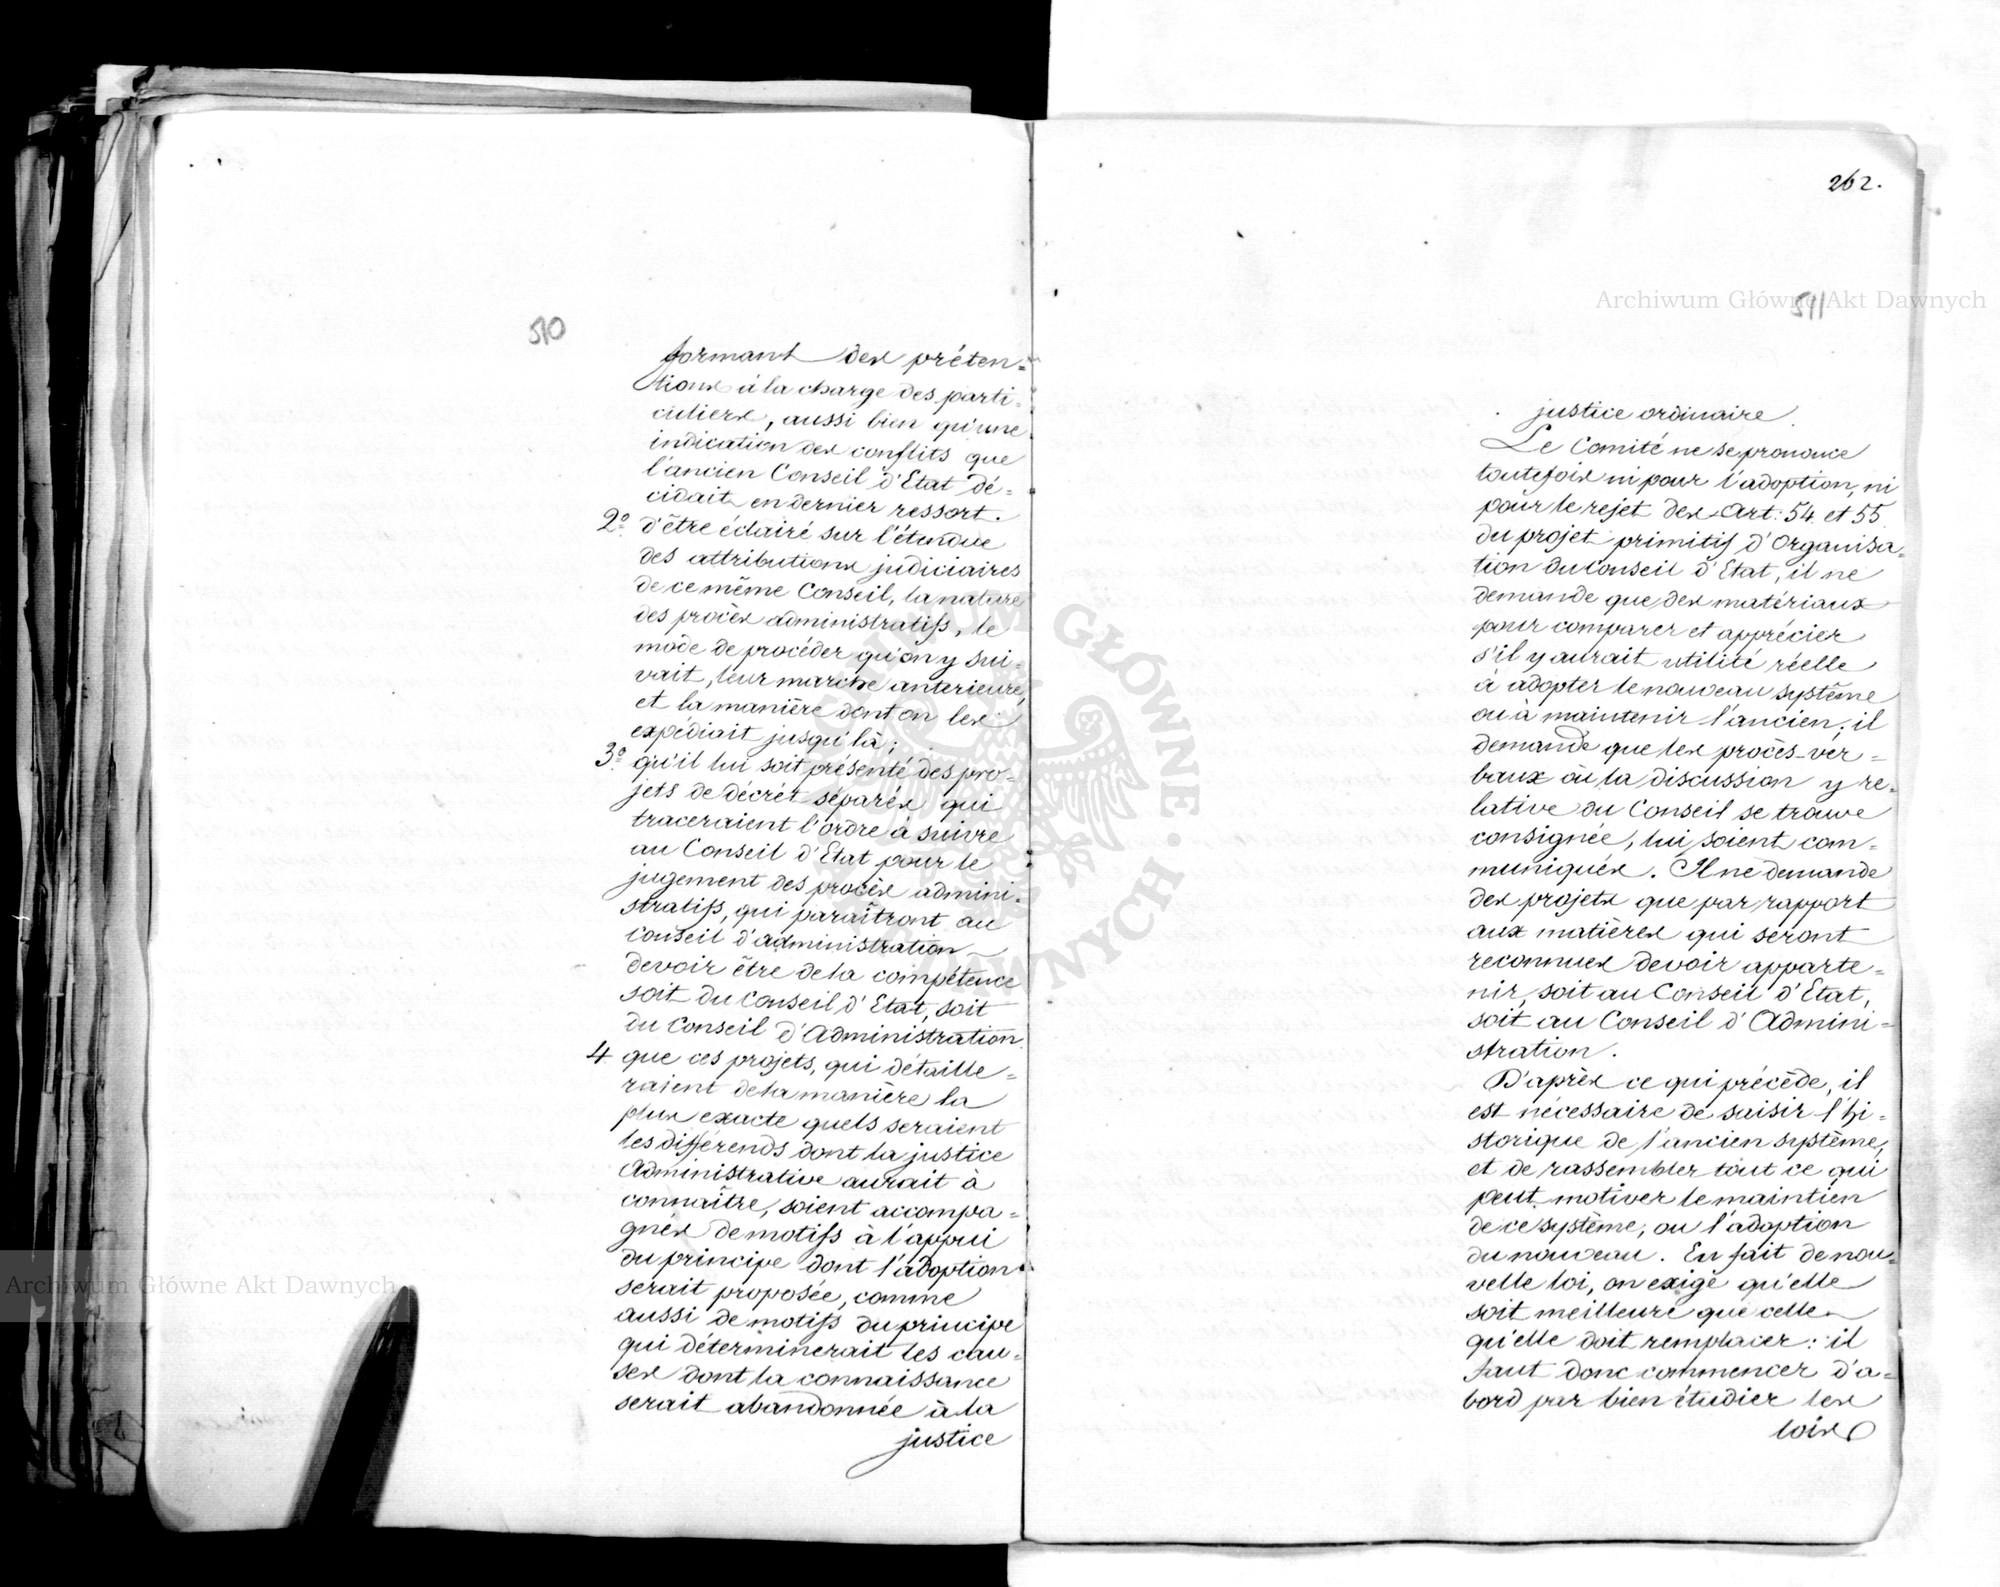 510
formant des préten=
tions à la charge des parti-
culiers, aussi bien qu'une
indication des conflits que
l'ancien Conseil d'Etat dé=
cidait en dernier ressort.
2º d'être éclairé sur l'étendue
des attributions judiciaires
de ce même Conseil, la nature
des procès administratifs, le
mode de procéder qu'on y sui-
vait, leur marche anterieure,
et la manière dont on les
expédiait jusqu'là;
3º qu'il lui soit présenté des pro-
jets de décret séparés qui
traceraient l'ordre à suivre
au Conseil d'Etat pour le
jugement des procès admini-
stratifs, qui paraîtront au
Conseil d'administration
devoir être de la compétence
soit du Conseil d'Etat, soit
du Conseil d'Administration.
4 que ces projets, qui détaille=
raient de la manière la
plus exacte quels seraient
les différends dont la justice
Administrative aurait à
connaître, soient accompa=
gnés de motifs à l'appui
du principe dont l'adoption
serait proposée, comme
aussi de motifs du principe
qui déterminerait les cau=
ses dont la connaissance
serait abandonnée à la
justice
262.
511
justice ordinaire.
Le Comité ne se prononce
toutefois ni pour l'adoption, ni
pour le rejet des Art: 54 et 55.
du projet primitif d'Organisa=
tion du Conseil d'Etat, il ne
demande que des matériaux
pour comparer et apprécier
s'il y aurait utilité réelle
à adopter le nouveau système
ou à maintenir l'ancien; il
demande que les procès-ver=
baux où la discussion y re-
lative du Conseil se trouve
consignée, lui soient com=
muniqués. Il ne demande
des projets que par rapport
aux matières qui seront
reconnues devoir apparte=
nir, soit au Conseil d'Etat,
soit au Conseil d'Admini=
stration.
D'après ce qui précède, il
est nécessaire de saisir l'hi=
storique de l'ancien système,
et de rassembler tout ce qui
peut motiver le maintien
de ce système, ou l'adoption
du nouveau. En fait de nou=
velle loi, on exige qu'elle
soit meilleure que celle
qu'elle doit remplacer: il
faut donc commencer d'a=
bord par bien étudier les
lois
Archiwum Główne Akt Dawnych
Archiwum Główne Akt Dawnych